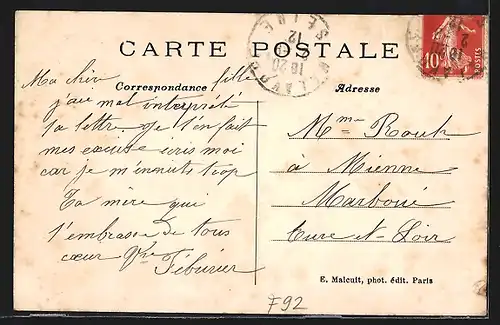 CARTE POSTALE
Correspondance
Adresse
Ma chère fille
j'ai mal interprété
ta lettre. Je t'en fait
mes excuse ecris moi
car je m'ennuis trop
Ta mère qui
t'embrasse de tous
cœur Vve Féburier
Mme Rouh
à Mienne
Marboué
Eure-et-Loir
E. Malcuit, phot. édit. Paris
F92
SEINE
10
POSTES